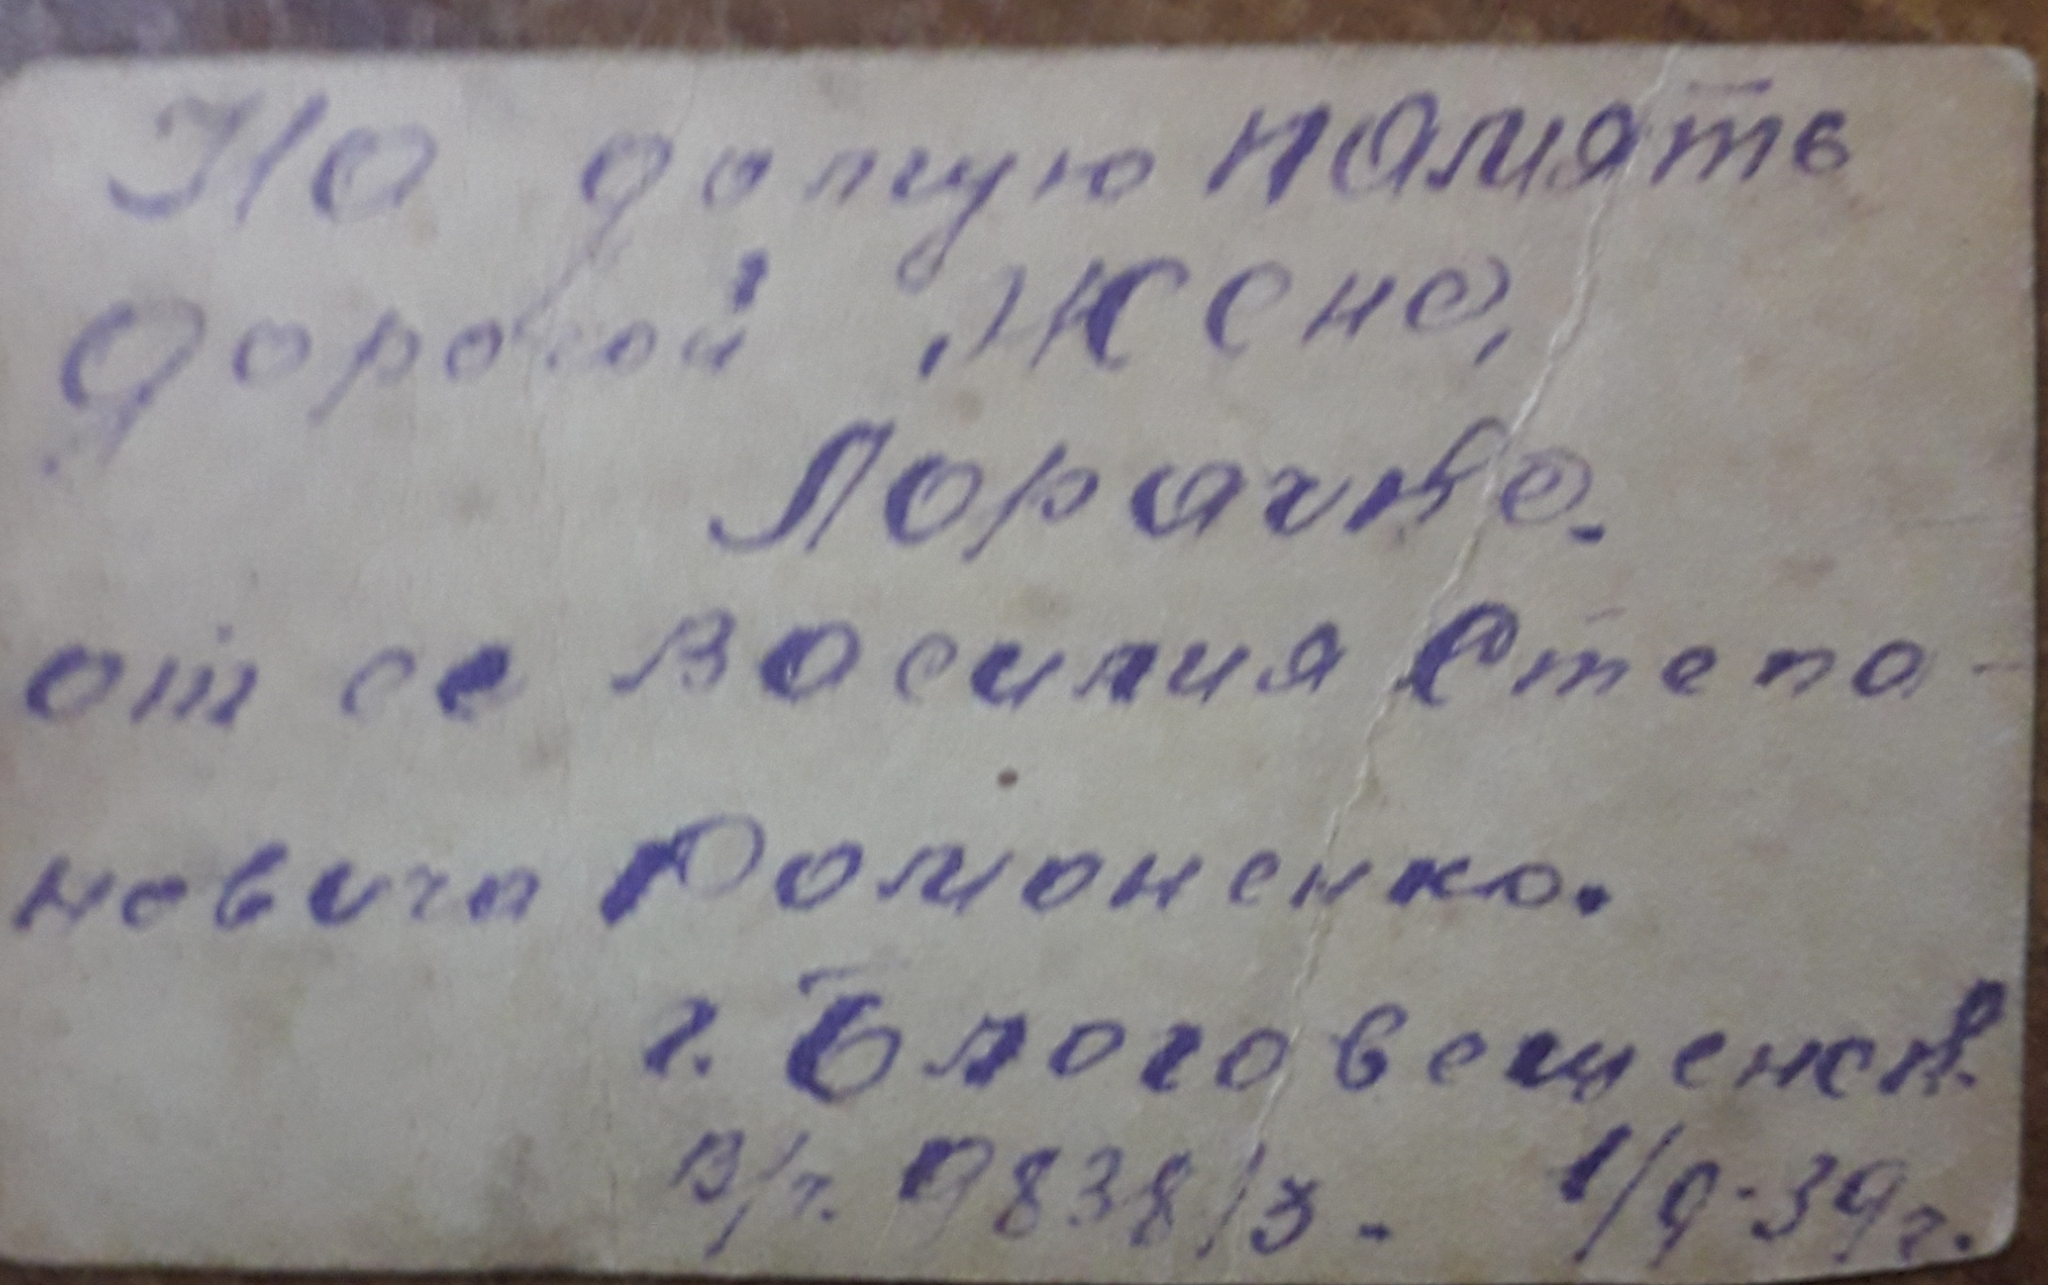 На долгую память
дорогой жене,
Лорочке.
от се Василия Степа-
новича Романенко.
г. Благовещенск.
В/ч. 9838/3. 1/9-39г.